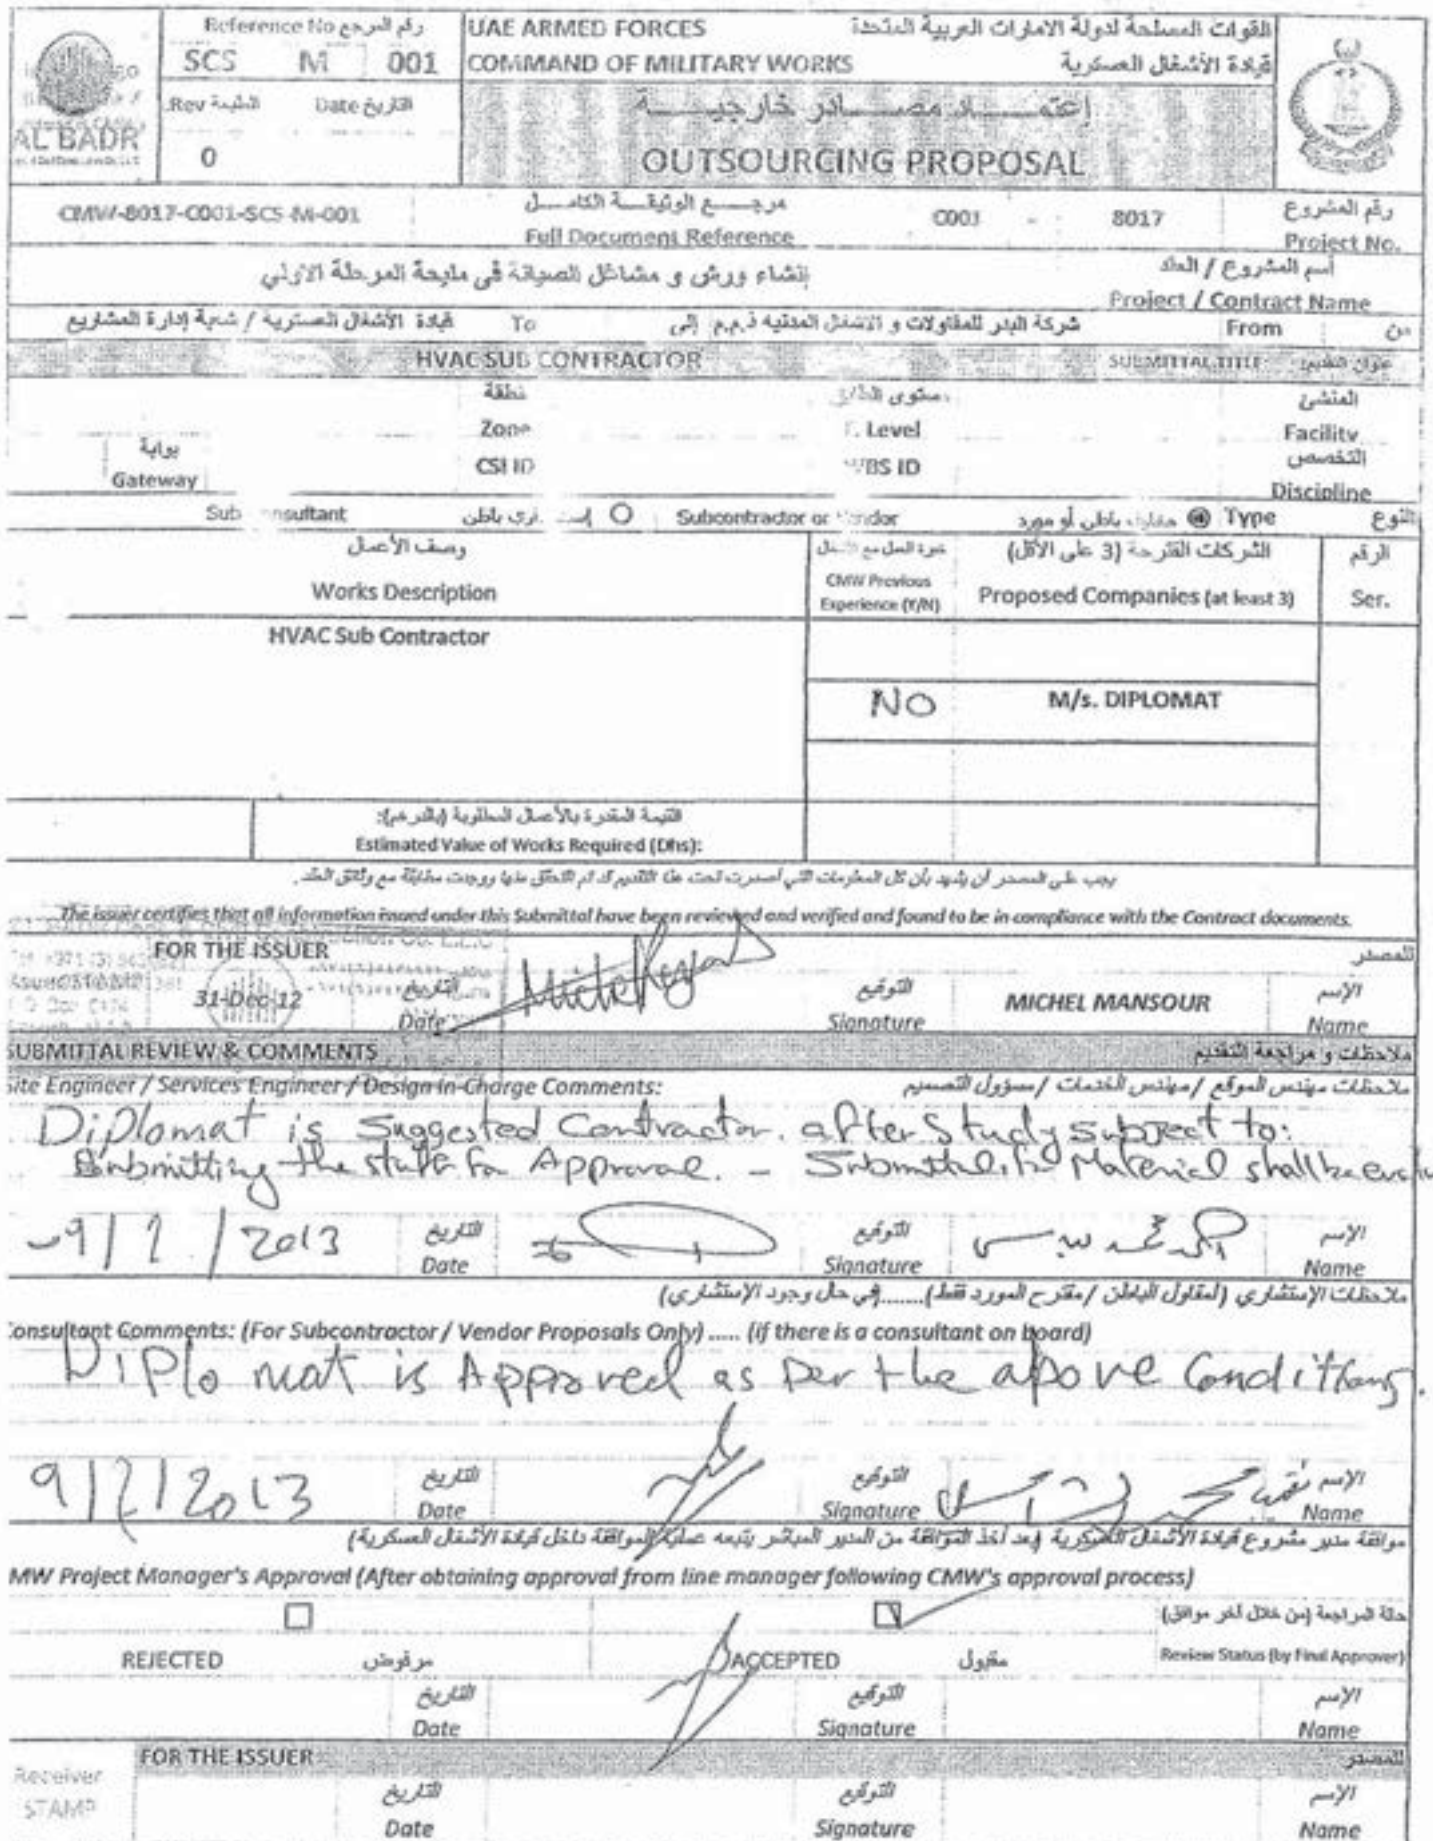 Reference No رقم المرجع
SCS M 001
Rev. الطبعة Date التاريخ
0
AL BADR
UAE ARMED FORCES القوات المسلحة لدولة الامارات العربية المتحدة
COMMAND OF MILITARY WORKS قيادة الأشغال العسكرية
إعتمـــاد مصـــادر خارجيـــة
OUTSOURCING PROPOSAL
CMW-8017-C001-SCS-M-001 مرجـــع الوثيقـــة الكامـــل C001 - 8017 رقم المشروع
Full Document Reference Project No.
إنشاء ورش و مشاغل الصيانة في مليحة المرحلة الأولي أسم المشروع / العقد
Project / Contract Name
قيادة الأشغال العسكرية / شعبة إدارة المشاريع To إلى شركة البدر للمقاولات و الاشغال المدنيه ذ.م.م From من
HVAC SUB CONTRACTOR SUBMITTAL TITLE عنوان التقديم
المنشئ
Zone Level Facility
بوابة التخصص
Gateway CSI ID WBS ID Discipline
Subcontractor or Vendor مقاول باطن أو مورد Type النوع
وصف الأعمال الشركات المقترحة (3 على الأقل) الرقم
Works Description CMW Previous Experience (Y/N) Proposed Companies (at least 3) Ser.
HVAC Sub Contractor
NO M/s. DIPLOMAT
القيمة المقدرة بالأعمال المطلوبة (بالدرهم):
Estimated Value of Works Required (Dhs):
يجب على المصدر أن يشهد بأن كل المعلومات التي أصدرت تحت هذا التقديم قد تم التحقق منها ووجدت مطابقة مع وثائق العقد.
The issuer certifies that all information issued under this Submittal have been reviewed and verified and found to be in compliance with the Contract documents.
FOR THE ISSUER للمصدر
31-Dec-12 التاريخ التوقيع MICHEL MANSOUR الإسم
Date Signature Name
SUBMITTAL REVIEW & COMMENTS ملاحظات و مراجعة التقديم
Site Engineer / Services Engineer / Design in-Charge Comments: ملاحظات مهندس الموقع / مهندس الخدمات / مسؤول التصميم
Diplomat is Suggested Contractor. after Study subject to:
Submitting the staff for Approval. - Submittal for Material shall be
2013 التاريخ التوقيع الإسم
Date Signature Name
ملاحظات الإستشاري (لمقاول الباطن / مقترح المورد فقط)........(في حال وجود الإستشاري)
Consultant Comments: (For Subcontractor / Vendor Proposals Only) ..... (if there is a consultant on board)
Diplomat is Approved as per the above Conditions.
9/2/2013 التاريخ التوقيع الإسم
Date Signature Name
موافقة مدير مشروع قيادة الأشغال العسكرية (بعد أخذ الموافقة من المدير المباشر يتبعه عملية الموافقة داخل قيادة الأشغال العسكرية)
MW Project Manager's Approval (After obtaining approval from line manager following CMW's approval process)
حالة المراجعة (من خلال أخر موافق)
REJECTED مرفوض ACCEPTED مقبول Review Status (by Final Approver)
التاريخ التوقيع الإسم
Date Signature Name
FOR THE ISSUER للمصدر
Receiver
STAMP
التاريخ التوقيع الإسم
Date Signature Name